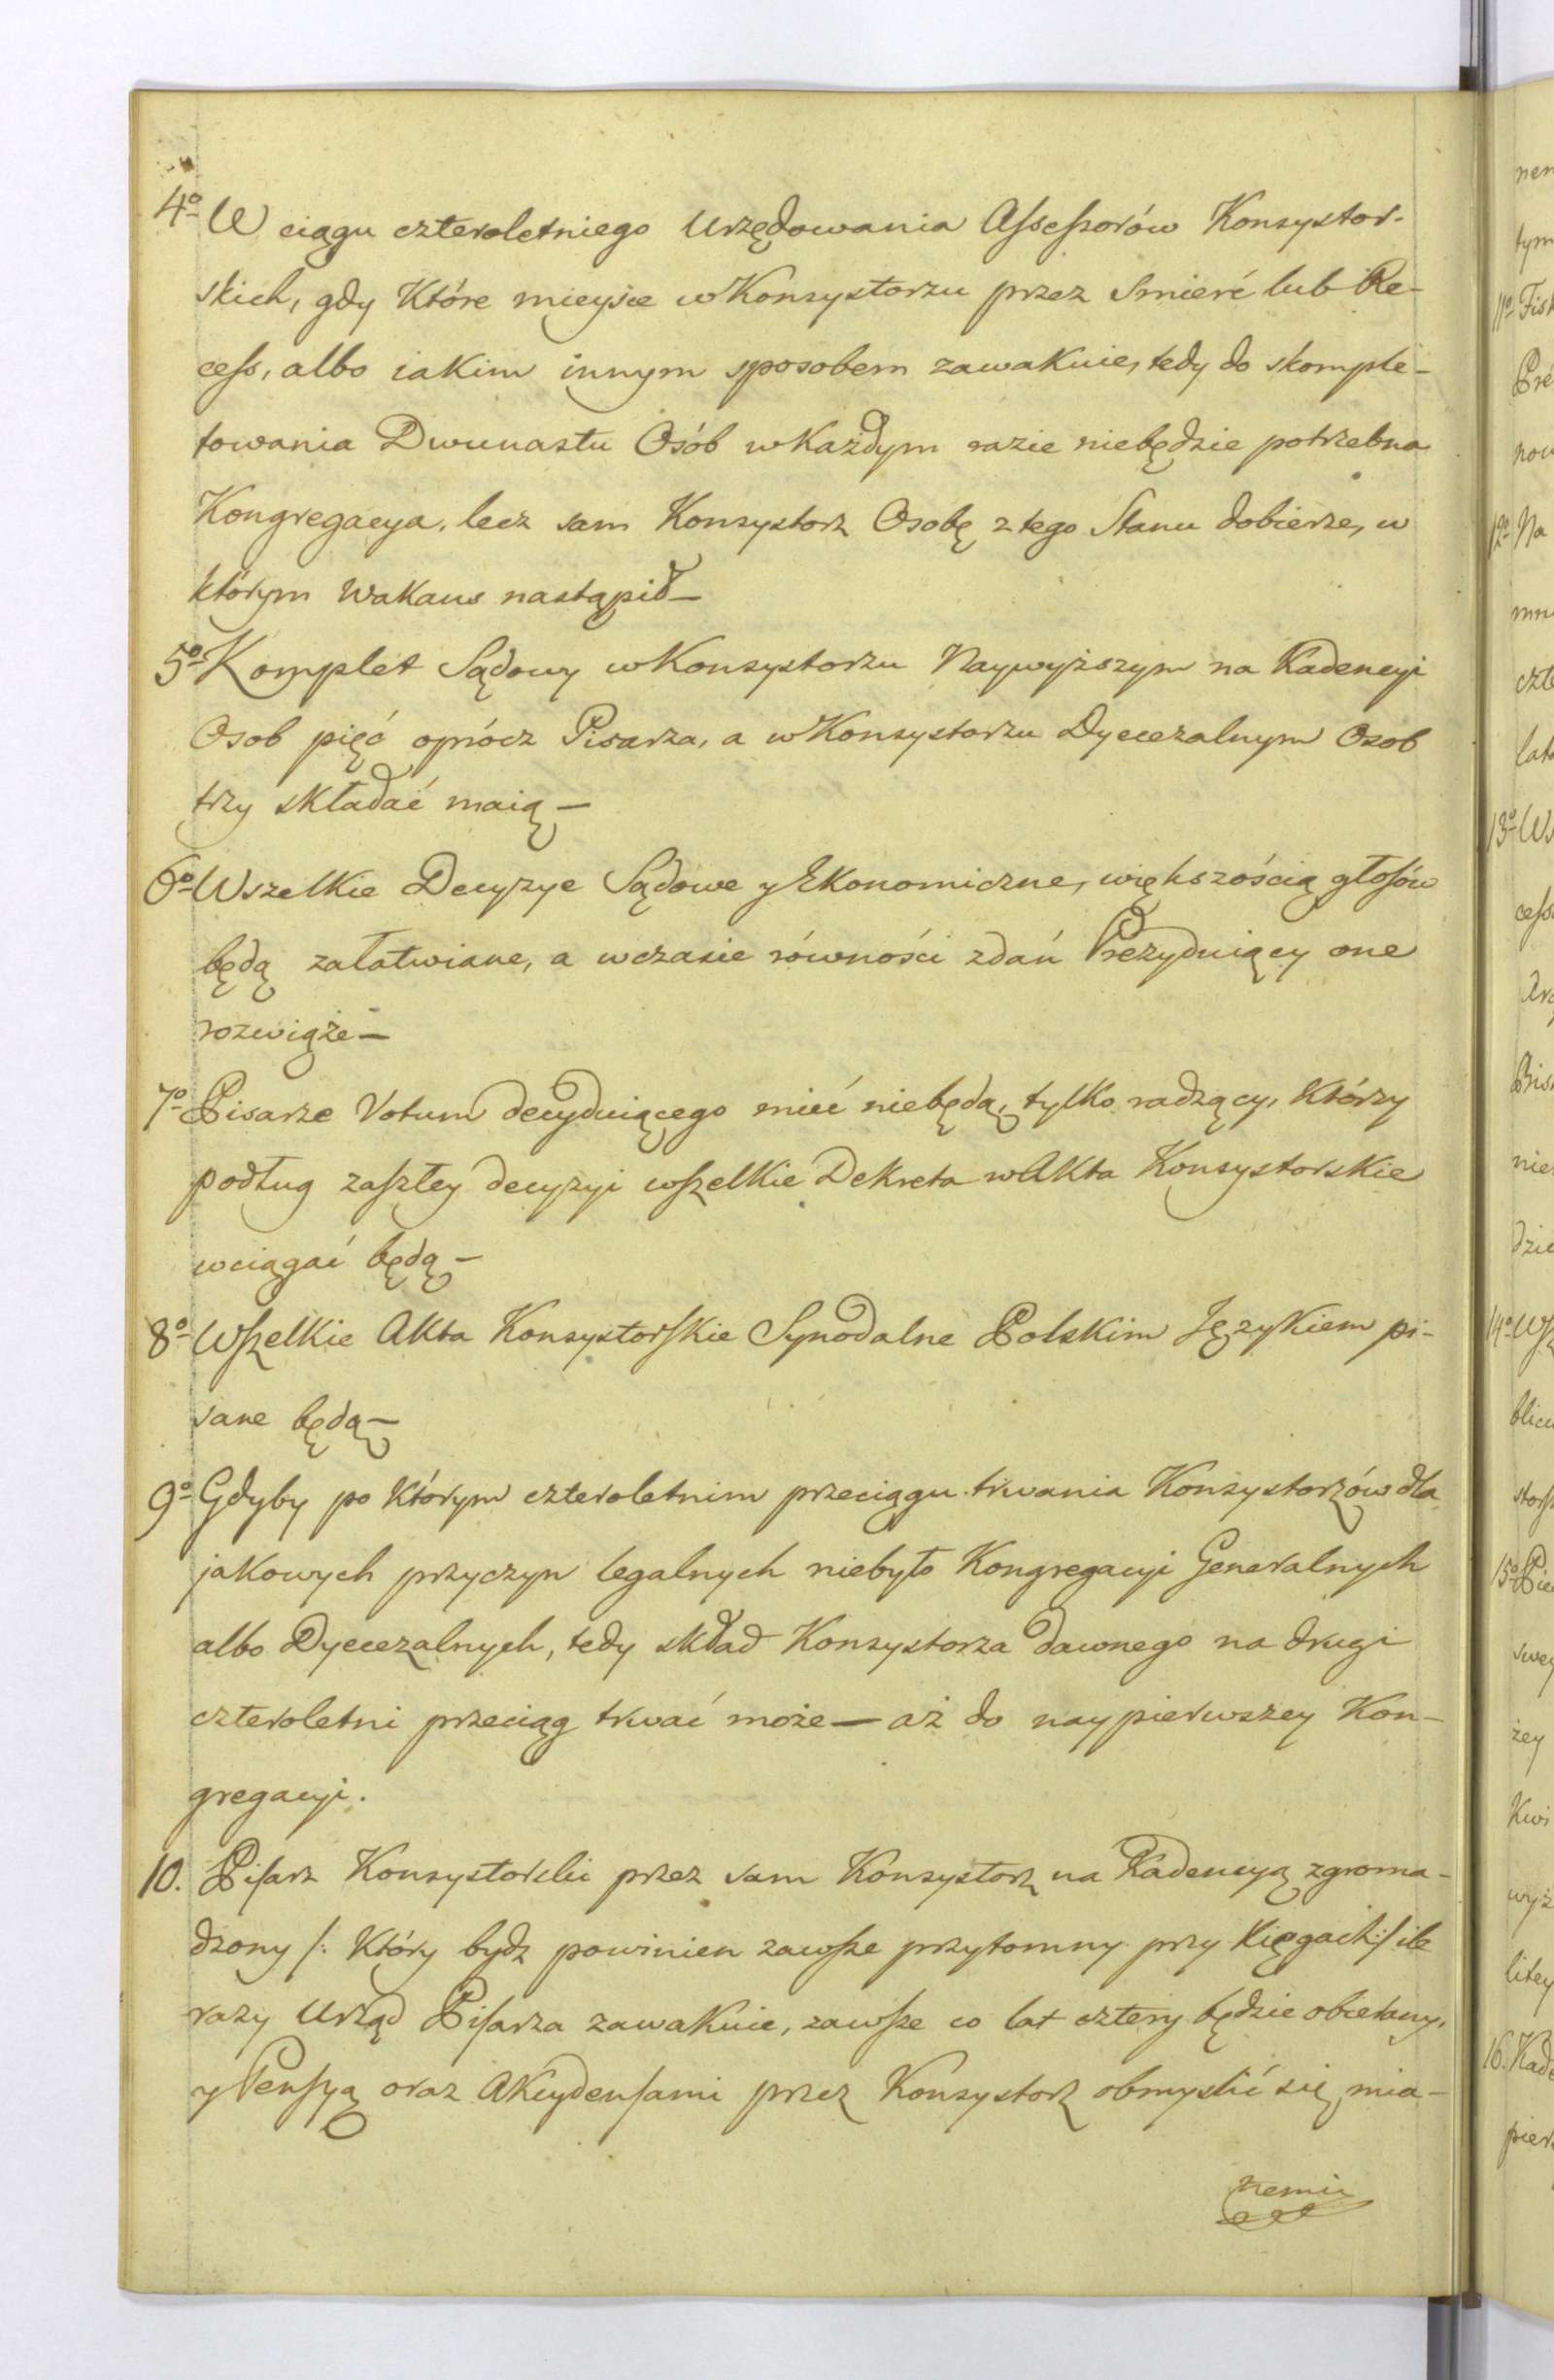 4º W ciągu czteroletniego Urzędowania Assessorów Konsystor-
skich, gdy które mieysce w Konsystorzu przez Smierć lub Re-
cess, albo iakim innym sposobem zawakuie, tedy do skomple-
towania Dwunastu Osób w każdym razie niebędzie potrzebna
Kongregacya, lecz sam Konsystorz Osobę z tego Stanu dobierze, w
którym Wakans nastąpił—
5º Komplet Sądowy w Konsystorzu Naywyższym na Kadencyi
Osob pięć oprócz Pisarza, a w Konsystorzu Dyecezalnym Osob
trzy składać maią—
6º Wszelkie Decyzye Sądowe y Ekonomiczne, większością głosów
będą załatwiane, a w czasie równości zdań Prezyduiący one
rozwiąże—
7º Pisarze Votum decyduiącego mieć niebędą, tylko radzący, którzy
podług zaszłey decyzyi wszelkie Dekreta w Akta Konsystorskie
wciągać będą—
8º Wszelkie Akta Konsystorskie Synodalne Polskim Językiem pi-
sane będą—
9º Gdyby po którym czteroletnim przeciągu trwania Konsystorzów dla
jakowych przyczyn legalnych niebyło Kongregacyi Generalnych
albo Dyecezalnych, tedy skład Konsystorza dawnego na drugi
czteroletni przeciąg trwać może— aż do naypierwszey Kon-
gregacyi.
10. Pisarz Konsystorski przez sam Konsystorz na Kadencyą zgroma-
dzony /: który bydz powinien zawsze przytomny przy Xięgach :/ ile
razy Urząd Pisarza zawakuie, zawsze co lat cztery będzie obierany,
y Pensyą oraz Akcydensami przez Konsystorz obmyslić się mia-
nemi
nem
tym
11º Fis
Pre
now
12º Na
mn
czte
lat
13º Ws
cess
Arc
Bis
nie
dzie
14º Wsz
blicz
stors
15º Pie
swey
zey
Kwi
wyż
litey
16. Kade
pierw